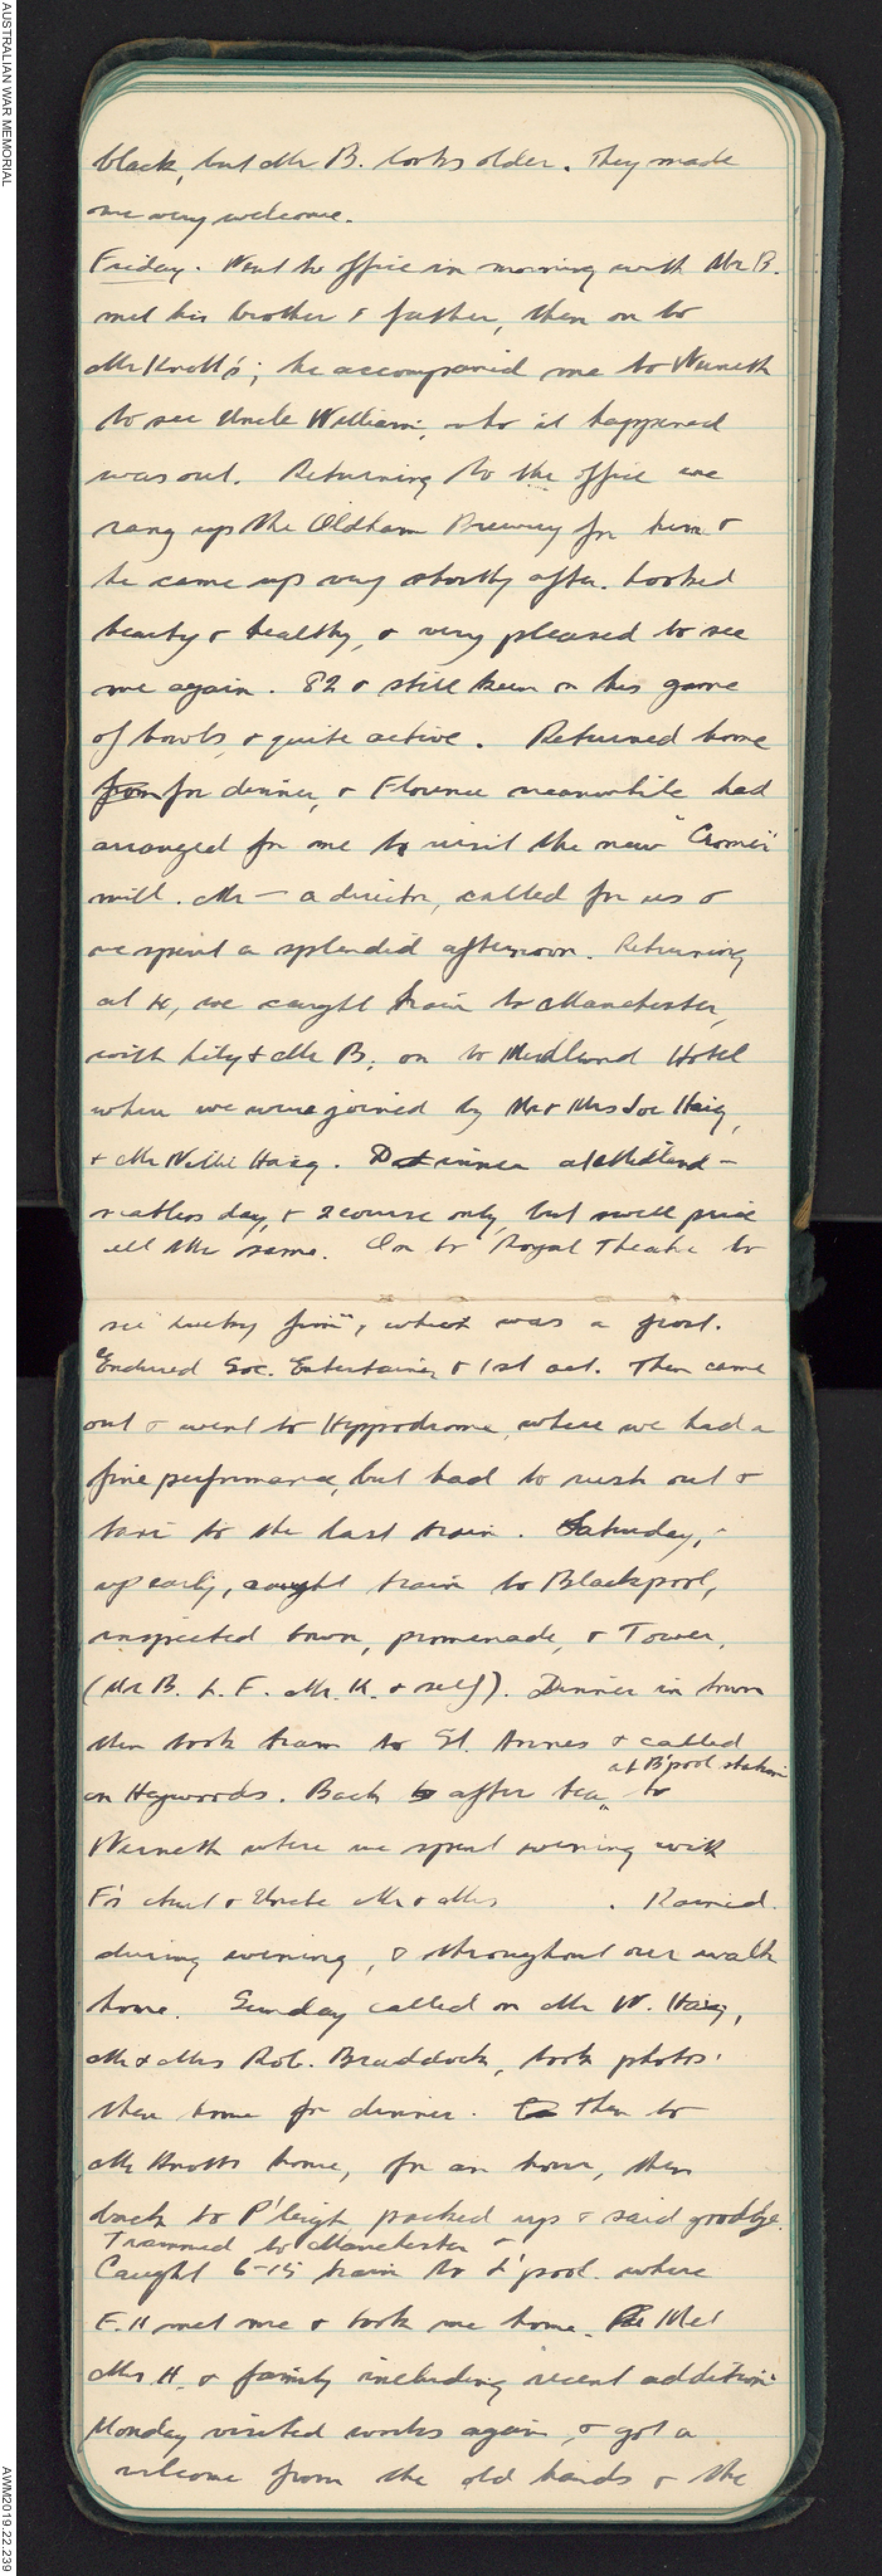 AUSTRALIAN WAR MEMORIAL
black, but Mr B. looks older. They made
me very welcome.
Friday. Went to office in morning with Mr B.
met his brother & father, then on to
Mr Knott's; he accompanied me to Werneth
to see Uncle William, who it happened
was out. Returning to the office we
rang up the Oldham Brewery for him &
he came up very shortly after. Looked
hearty & healthy, & very pleased to see
me again. 82 & still keen on his game
of bowls, & quite active. Returned home
from for dinner, & Florence meanwhile had
arranged for me to visit the new "Cromer"
mill. Mr — a director, called for us &
we spent a splendid afternoon. Returning
at 4, we caught train to Manchester,
with Lily & Mr B; on to Midland Hotel
where we were joined by Mr & Mrs Joe Haig,
& Mr Willie Haig. Dinner at Midland -
meatless day, & 2 course only, but swell price
all the same. On to Royal Theatre to
see "Lucky Jim", which was a frost.
Endured Soc. Entertainer & 1st act. Then came
out & went to Hyppodrome, where we had a
fine performance, but had to rush out &
taxi to the last train. Saturday, -
up early, caught train to Blackpool,
inspected town, promenade, & Tower,
(Mr B. L. F. Mr. K. & self). Dinner in town
then took tram to St. Annes & called
on Heywoods. Back to after tea at B'pool station to
Werneth where we spent evening with
F's Aunt & Uncle Mr & Mrs . Rained
during evening, & throughout our walk
home. Sunday called on Mr W. Haig,
Mr & Mrs Rob. Braddock, took photos.
then home for dinner. Then to
Mr Knotts home, for an hour, then
back to P'leigh packed up & said goodbye.
Trammed to Manchester &
Caught 6-15 train to L'pool. where
F.H met me & took me home. Met
Mrs H. & family including recent addition
Monday visited works again, & got a
welcome from the old hands & the
AWM2019.22.239